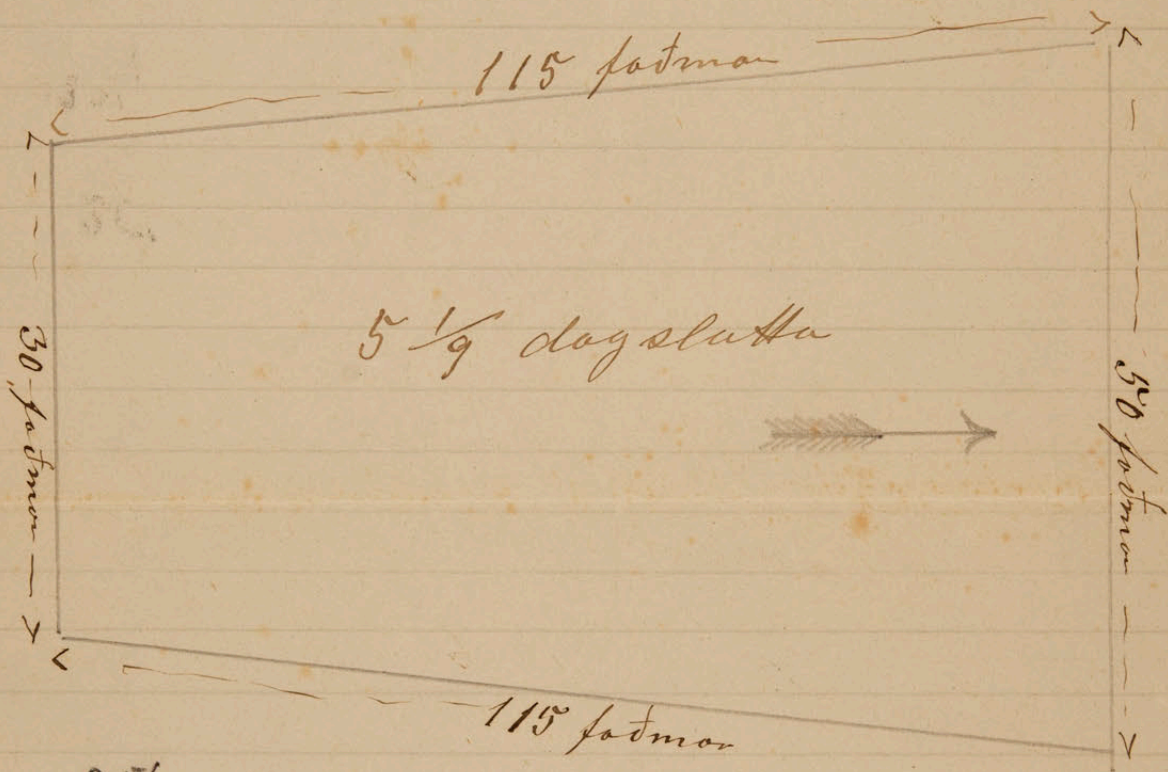 115 faðmar
30 faðmar
5 1/9 dagslátta
50 faðmar
115 faðmar